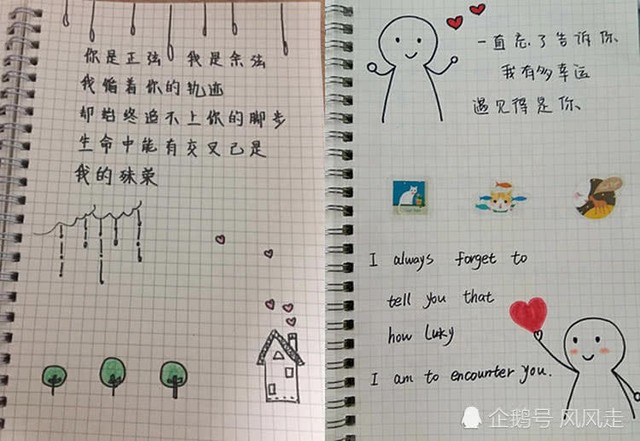 你是正弦 我是余弦
我循着你的轨迹
却始终追不上你的脚步
生命中能有交叉已是
我的殊荣
一直忘了告诉你
我有多幸运
遇见得是你
I always forget to
tell you that
how luky
I am to encounter you.
企鹅号 风风走